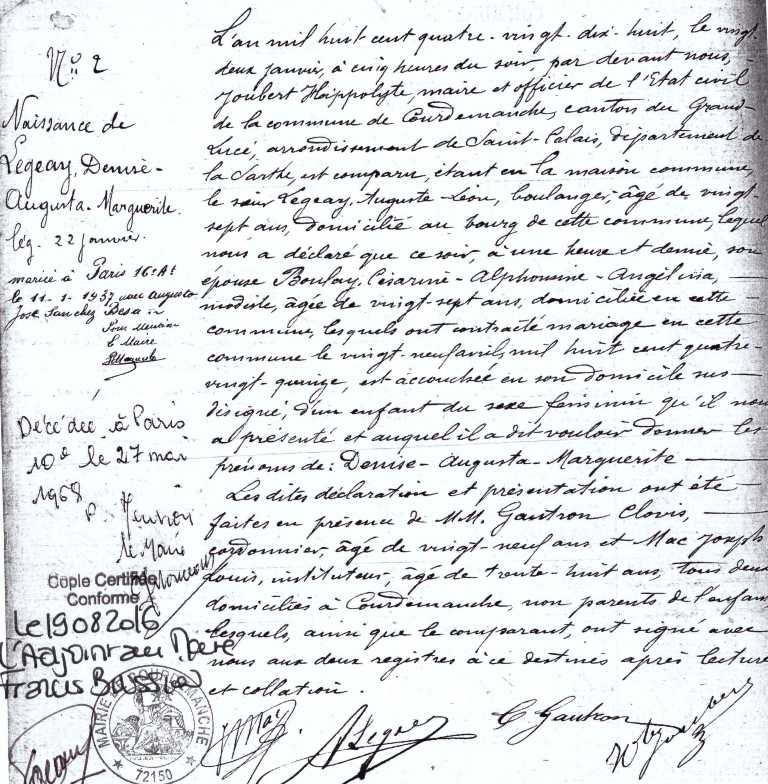 N° 2
Naissance de
Legeay, Denise-
Augusta-Marguerite.
lég. 22 janvier.
mariée à Paris 16e Art
le 11-1-1937 avec Augusto
José Sanchez Besa
Pour Mention
Le Maire
Décédée à Paris
10e le 27 mai
1968
P. Mention
le Maire
Copie Certifiée
Conforme
Le 19082016
L'Adjoint au Maire
Francis
MAIRIE COURDEMANCHE
72150
L'an mil huit cent quatre-vingt-dix-huit, le vingt
deux janvier, à cinq heures du soir, par devant nous,
Joubert Hippolyte, maire et officier de l'Etat civil
de la commune de Courdemanche, canton du Grand-
Lucé, arrondissement de Saint-Calais, département de
la Sarthe, est comparu, étant en la maison commune,
le sieur Legeay, Auguste-Léon, boulanger, âgé de vingt-
sept ans, domicilié au bourg de cette commune, lequel
nous a déclaré que ce soir, à une heure et demie, son
épouse Boulay, Césarine-Alphonsine-Angélina,
modiste, âgée de vingt-sept ans, domiciliée en cette
commune, lesquels ont contracté mariage en cette
commune le vingt-neuf avril, mil huit cent quatre-
vingt-quinze, est accouchée en son domicile sus-
désigné, d'un enfant du sexe féminin qu'il nous
a présenté et auquel il a dit vouloir donner les
prénoms de: Denise-Augusta-Marguerite
Les dites déclaration et présentation ont été
faites en présence de MM. Gautron Clovis,
cordonnier, âgé de vingt-neuf ans et Mac Joseph
Louis, instituteur, âgé de trente-huit ans, tous deux
domiciliés à Courdemanche, non parents de l'enfant
lesquels, ainsi que le comparant, ont signé avec
nous aux deux registres à ce destinés après lecture
et collation.
Mac
A Legeay
C Gautron